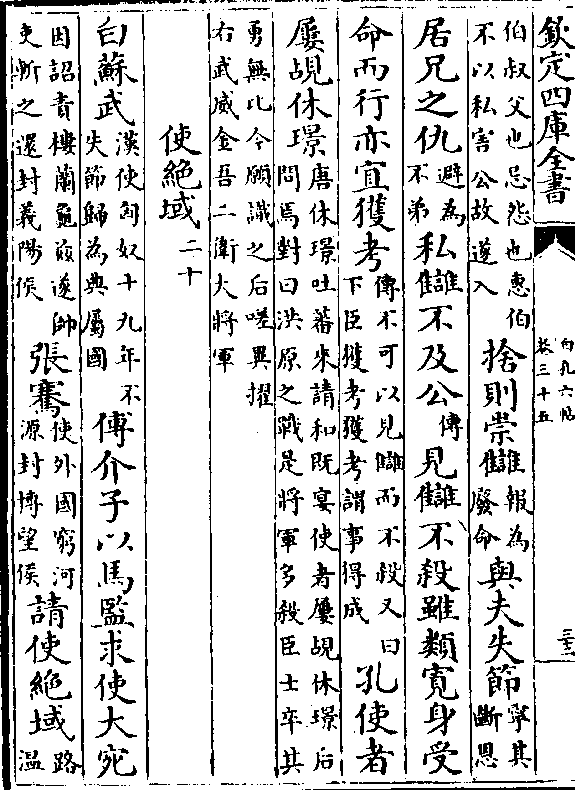 欽定四庫全書
白孔六帖
卷三十五
三十三
伯叔父也忌怨也惠伯
不以私害公故遂入
捨則崇讎報為
廢命
與夫失節寧其
斷恩
居兄之仇避為
不弟
私讎不及公傳
見讎不殺雖類寛身受
命而行亦宜獲考傳不可以見讎而不殺又曰
下臣獲考獲考謂事得成
孔使者
屢覘休璟唐休璟吐蕃來請和既宴使者屢覘休璟后
問焉對曰洪原之戰是將軍多殺臣士卒其
勇無比今願識之后嗟異擢
右武威金吾二衛大將軍
使絶域二十
白蘇武漢使匈奴十九年不
失節歸為典屬國
傅介子以馬監求使大宛
因詔責樓蘭龜茲遂帥
吏斬之還封義陽侯
張騫使外國窮河
源封博望侯
請使絶域路
温